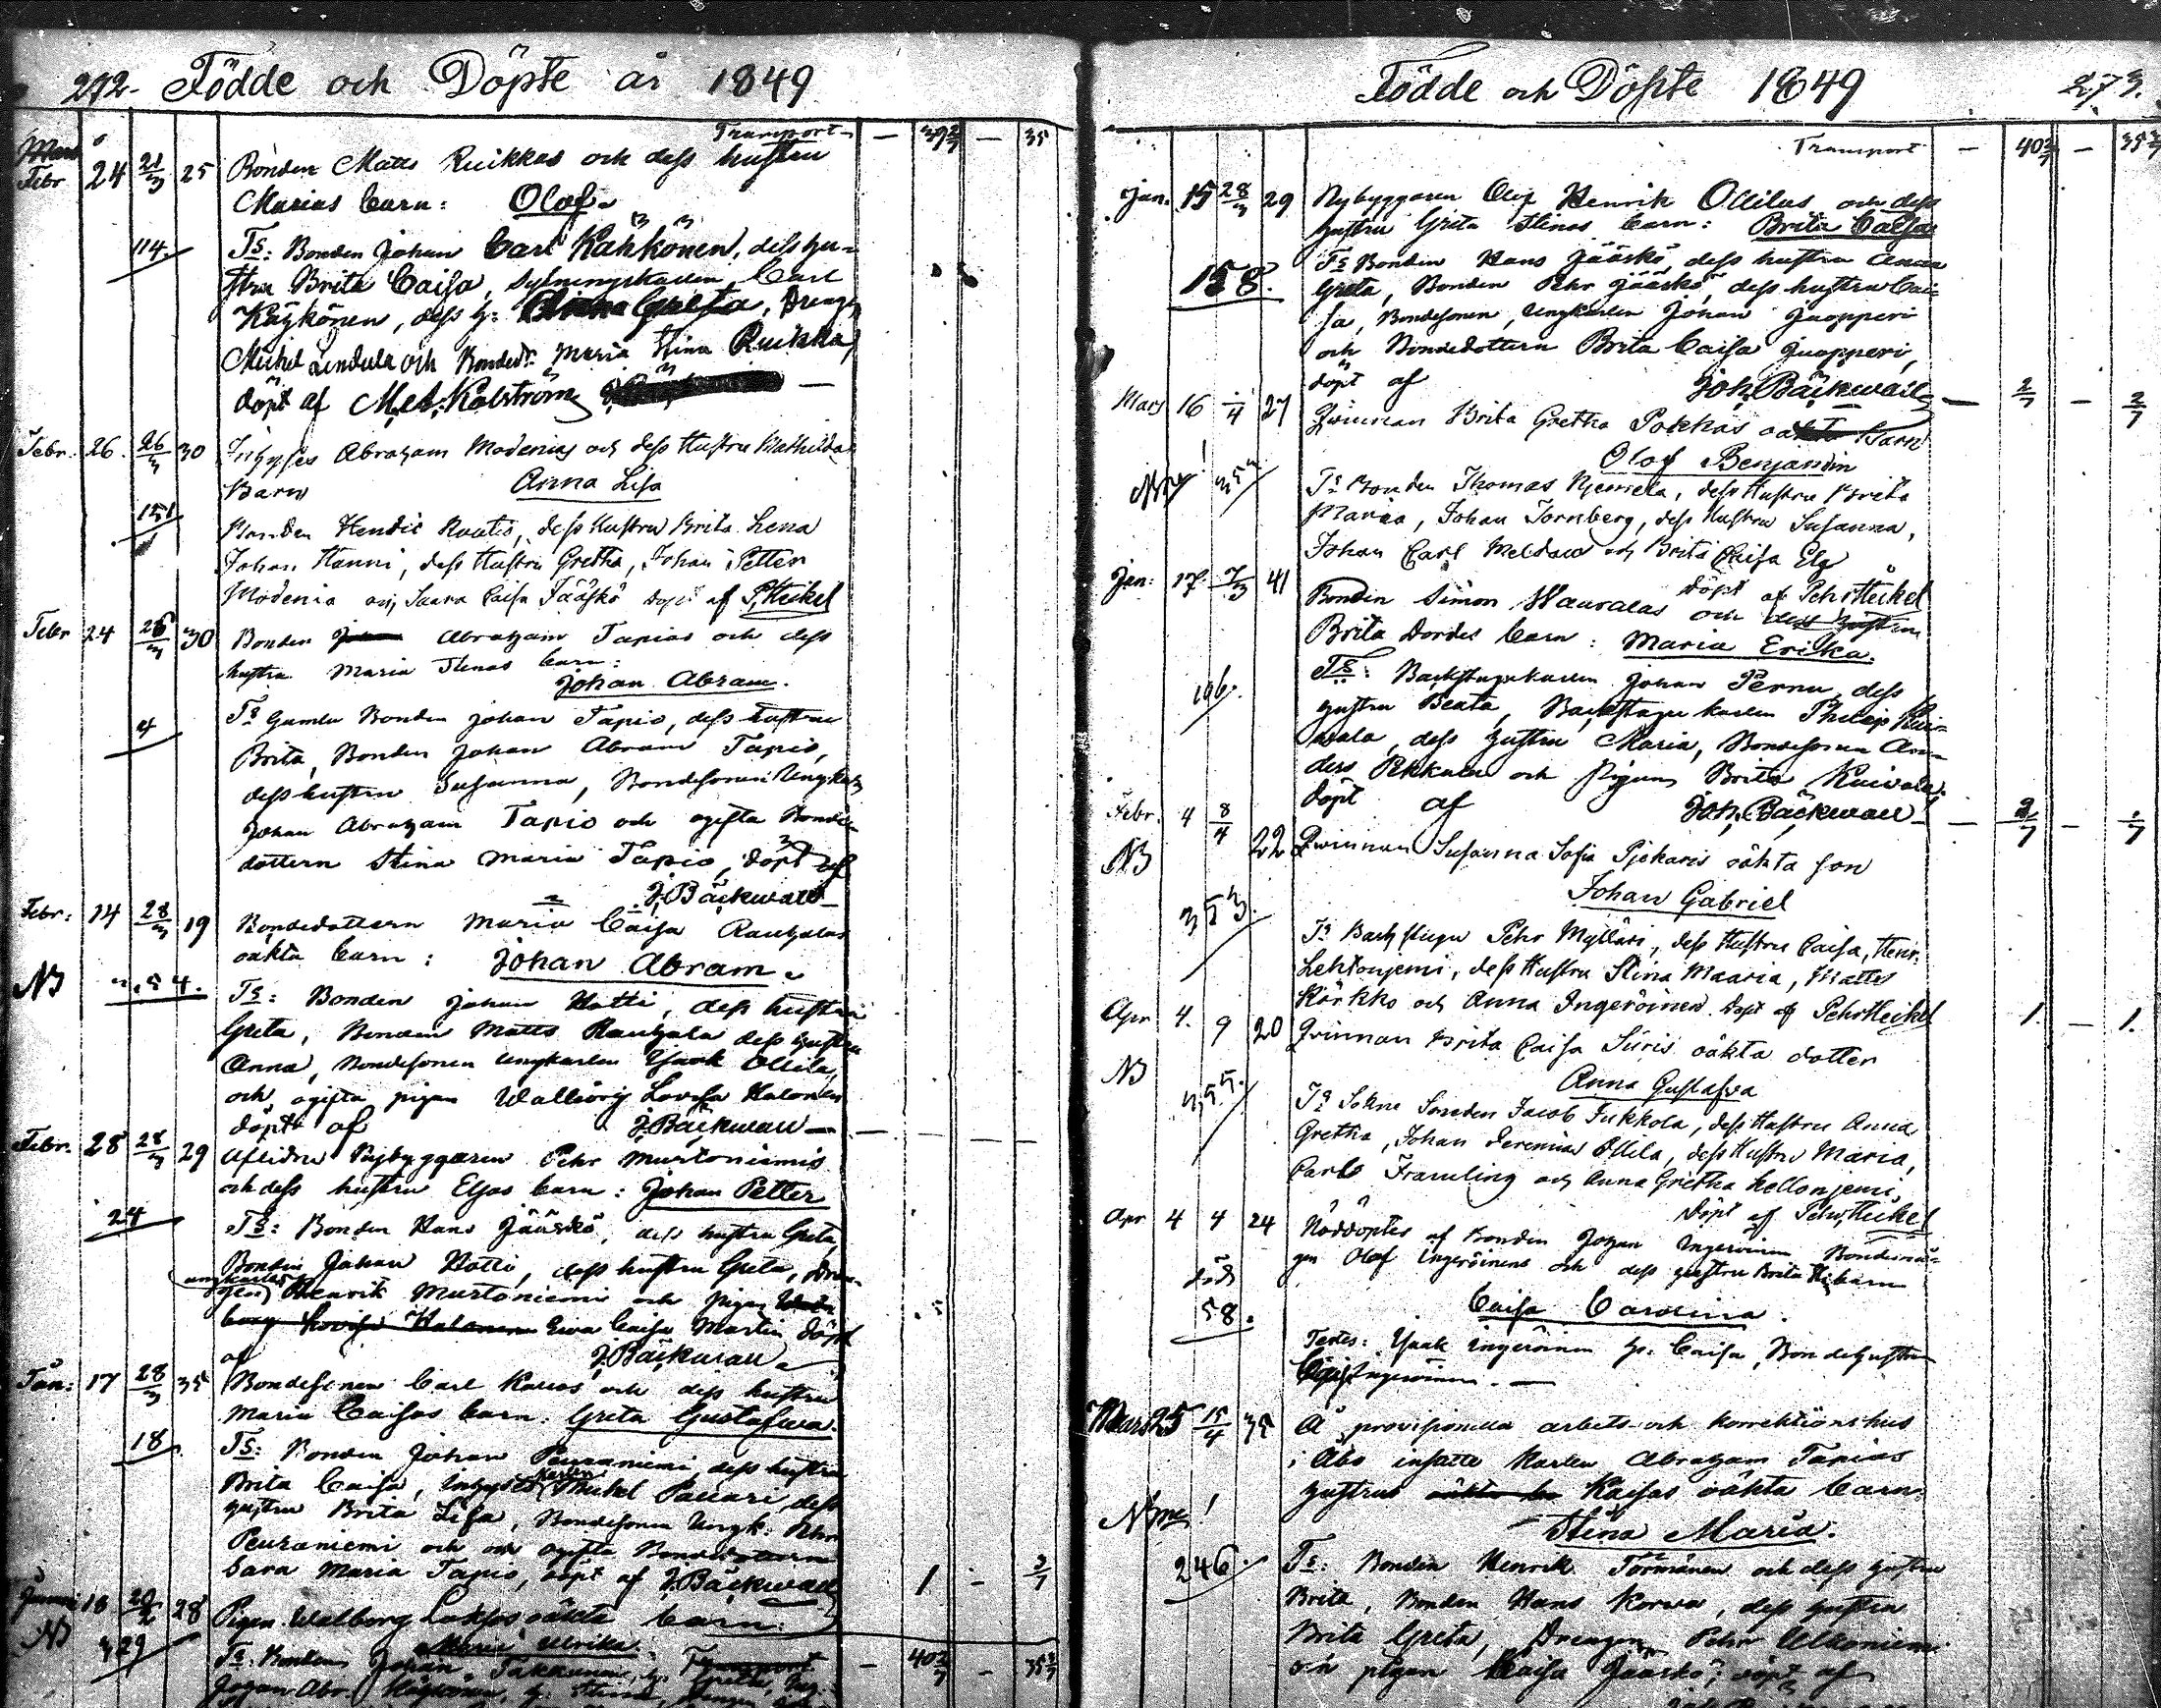 272. Födde och Döpte år 1849
Transport — 39 2/7 — 35
Mars
Febr 24 21/3 25 Bonden Matts Ruikkas och dess hustru
Marias barn: Olof.
114. Ts: Bonden Johan Carl Kähkönen, dess hu-
stru Brita Caisa, Sytningskarlen Carl
Käykönen, dess h: Greta, Drengen
Michel Lindula och Bonded: Maria Stina Ruikka,
döpt af M. Kolström
Febr. 26. 26/3 30 Inhyses Abraham Modenias och dess Hustru Mathildas
Barn Anna Lisa
151 Bonden Hendic Rautio, dess Hustru Brita Lena
Johan Hanni, dess Hustru Gretha, Johan Petter
Modenia och Saara Caisa Jääskö döpt af P. Heikel
Febr 24 26/3 30 Bonden Abraham Tapios och dess
hustru Maria Stinas barn:
Johan Abram.
4 Ts Gamla Bonden Johan Tapio, dess hustru
Brita, Bonden Johan Abram Tapio,
dess hustru Susanna, Bondesonen Ungkarlen
Johan Abraham Tapio och ogifta Bonde-
dottern Stina Maria Tapio, döpt af
J. Bäckwall
Febr: 14 28/3 19 Bondedottern Maria Caisa Rauhalas
oäkta barn: Johan Abram.
NB 354. Ts: Bonden Johan Hotti, dess hustru
Greta, Bonden Matts Rauhala dess hustru
Anna, Bondesonen Ungkarlen Isaak Ollila,
och ogifta pigan Wallborg Lovisa Halonen
döpt af J. Bäckwall —
Febr. 28 28/3 29 Aflidne Nybyggaren Pehr Murtoniemis
och dess hustru Elsas barn: Johan Petter
24 Ts: Bonden Hans Jääskö, dess hustru Greta,
Bonden Johan Hotti, dess hustru Greta,
ungkarlen Henrik Murtoniemi och pigan
Lovisa Halonen Ewa Caisa Martin döpt
af J. Bäckwall
Jan: 17 28/3 35 Bondesonen Carl Kallos och dess hustru
Maria Caisas barn: Greta Gustafwa.
18 Ts: Bonden Johan Peuraniemi dess hustru
Brita Caisa, Inhyses karlen Michel Paccari, dess
hustru Brita Lisa, Bondesonen Ungk: Pehr
Peuraniemi och ogifta Bondedottern
Sara Maria Tapio, döpt af J. Bäckwall 1 —
NB 18 28 Pigan Walborg oäkta barn:
329 Maria Ulrika
Ts: Bonden Johan
Transport — 40 2/7 — 35 2/7
Johan Abr.
Födde och Döpte 1849 273.
Transport — 40 2/7 — 35 2/7
Jan. 15 28/3 29 Nybyggaren Olof Henrik Ollilas och dess
hustru Greta Stinas barn: Brita Caisa
158. Ts Bonden Hans Jääskö, dess hustru Anna
Greta, Bonden Pehr Jääskö, dess hustru Cai-
sa, Bondesonen, Ungkarlen Johan Juopperi
och Bondedottern Brita Caisa Juopperi,
döpt af Joh. Bäckwall — 2/7 — 2/7
Mars 16 1/4 27 Qvinnan Brita Gretha Pokkas oäkta Barn
Olof Benjamin
Ts Bonden Thomas Njemela, dess Hustru Brita
Maria, Johan Tornberg, dess Hustru Susanna,
Johan Carl Meldau och Brita Caisa Elg
Döpt af Pehr Heikel
Jan: 17. 7/3 41 Bonden Simon Hauvalas och dess hustru
Brita Dordes barn: Maria Erika.
196. Ts: Backstugukarlen Johan Pernu, dess
hustru Beata, Backstugu karlen Philip Kui-
wala, dess hustru Maria, Bondesonen An-
ders Pekkala och Pigan Brita Kuiwala,
döpt af Joh. Bäckwall — 2/7 —
Febr. 4 8/4 22 Qvinnan Susanna Sofia Pjekaris oäkta son
NB Johan Gabriel
353. Ts Backstugu Pehr Mylläri, dess Hustru Caisa, Henr:
Lehtonjemi, dess Hustru Stina Maaria, Matts
Körkko och Anna Ingeröinen. Döpt af Pehr Heikel 1. — 1.
Apr 4. 9 20 Qvinnan Brita Caisa Siiris oäkta dotter
NB Anna Gustafva
355. Ts Sokne Smeden Jacob Jukkola, dess Hustru Anna
Gretha, Johan Jeremias Ollila, dess Hustru Maria,
Carl Framling och Anna Gretha Kellonjemi,
Döpt af Pehr Heikel
Apr 4 4 24 Nöddöptes af Bonden Johan Ingeröinen Bondemå-
gen Olof Ingeröinens och dess hustru Brita barn
död
58. Caisa Carolina.
Testes: Isaak Ingeröinen h: Caisa, Bondehustrun
Ingeröinen. —
Mars 25 15/4 35 Å provisionella arbets- och korrektionshus
i Åbo insatte Karlen Abraham Tapios
hustrus Kaisas oäkta barn:
Stina Maria.
246. Ts: Bonden Henrik Törmänen och dess hustru
Brita, Bonden Hans Korwa, dess hustru
Brita Greta, Drengen Pehr Ulkoniemi
och pigan Caisa Jääskö, döpt af